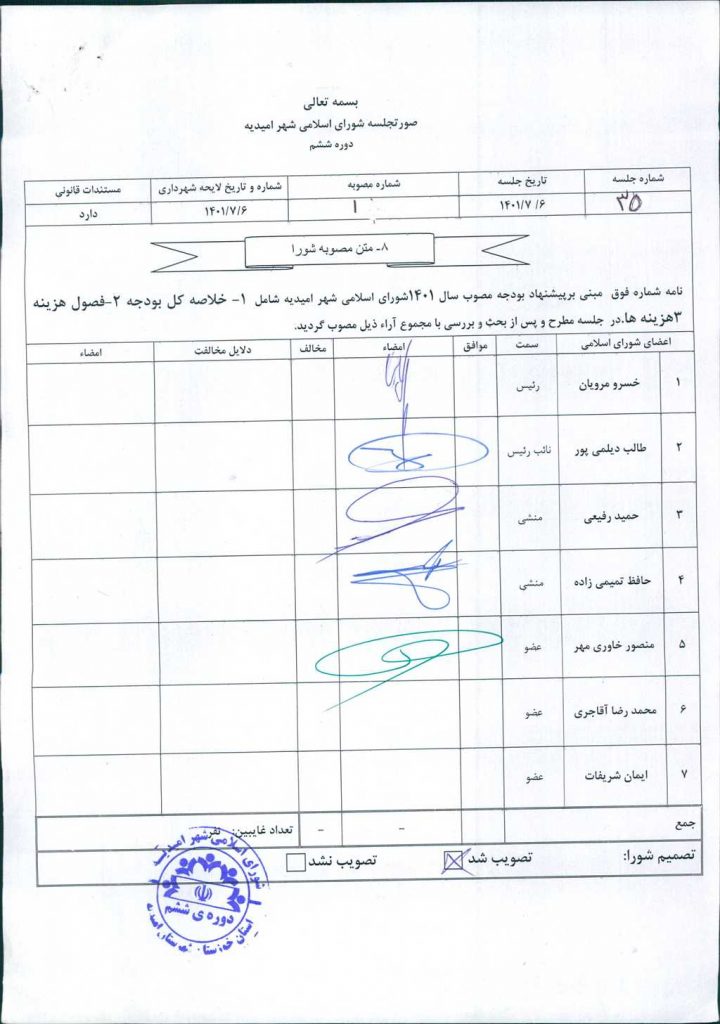 بسمه تعالی
صورتجلسه شورای اسلامی شهر امیدیه
دوره ششم
شماره جلسه تاریخ جلسه شماره مصوبه شماره و تاریخ لایحه شهرداری مستندات قانونی
۳۵ ۱۴۰۱/۷/۶ ۱ ۱۴۰۱/۷/۶ دارد
۸- متن مصوبه شورا
نامه شماره فوق مبنی برپیشنهاد بودجه مصوب سال ۱۴۰۱شورای اسلامی شهر امیدیه شامل ۱- خلاصه کل بودجه ۲-فصول هزینه
۳هزینه ها.در جلسه مطرح و پس از بحث و بررسی با مجموع آراء ذیل مصوب گردید.
اعضای شورای اسلامی سمت موافق امضاء مخالف دلایل مخالفت امضاء
۱ خسرو مرویان رئیس
۲ طالب دیلمی پور نائب رئیس
۳ حمید رفیعی منشی
۴ حافظ تمیمی زاده منشی
۵ منصور خاوری مهر عضو
۶ محمد رضا آقاجری عضو
۷ ایمان شریفات عضو
جمع - - تعداد غایبین: نفر
تصمیم شورا: تصویب شد تصویب نشد
شورای اسلامی شهر امیدیه
دوره ی ششم